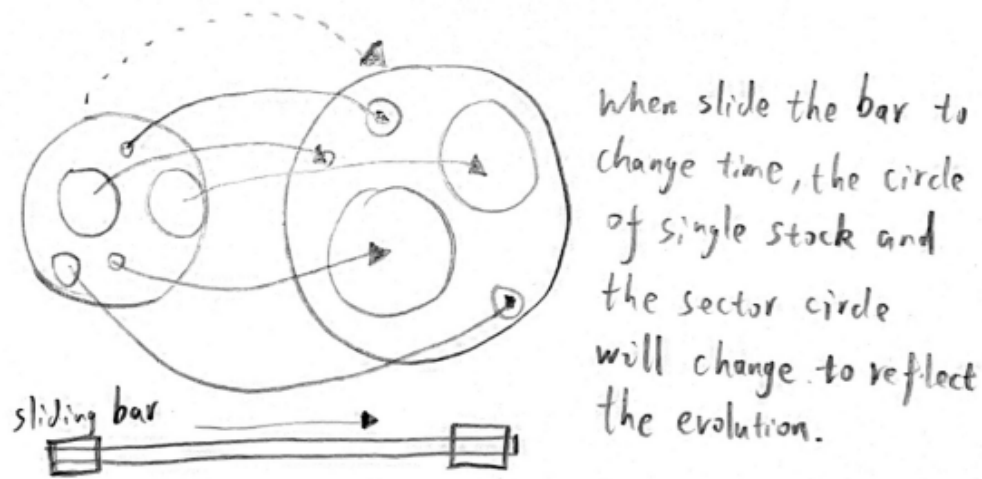 when slide the bar to
change time, the circle
of single stock and
the sector circle
will change to reflect
the evolution.
sliding bar